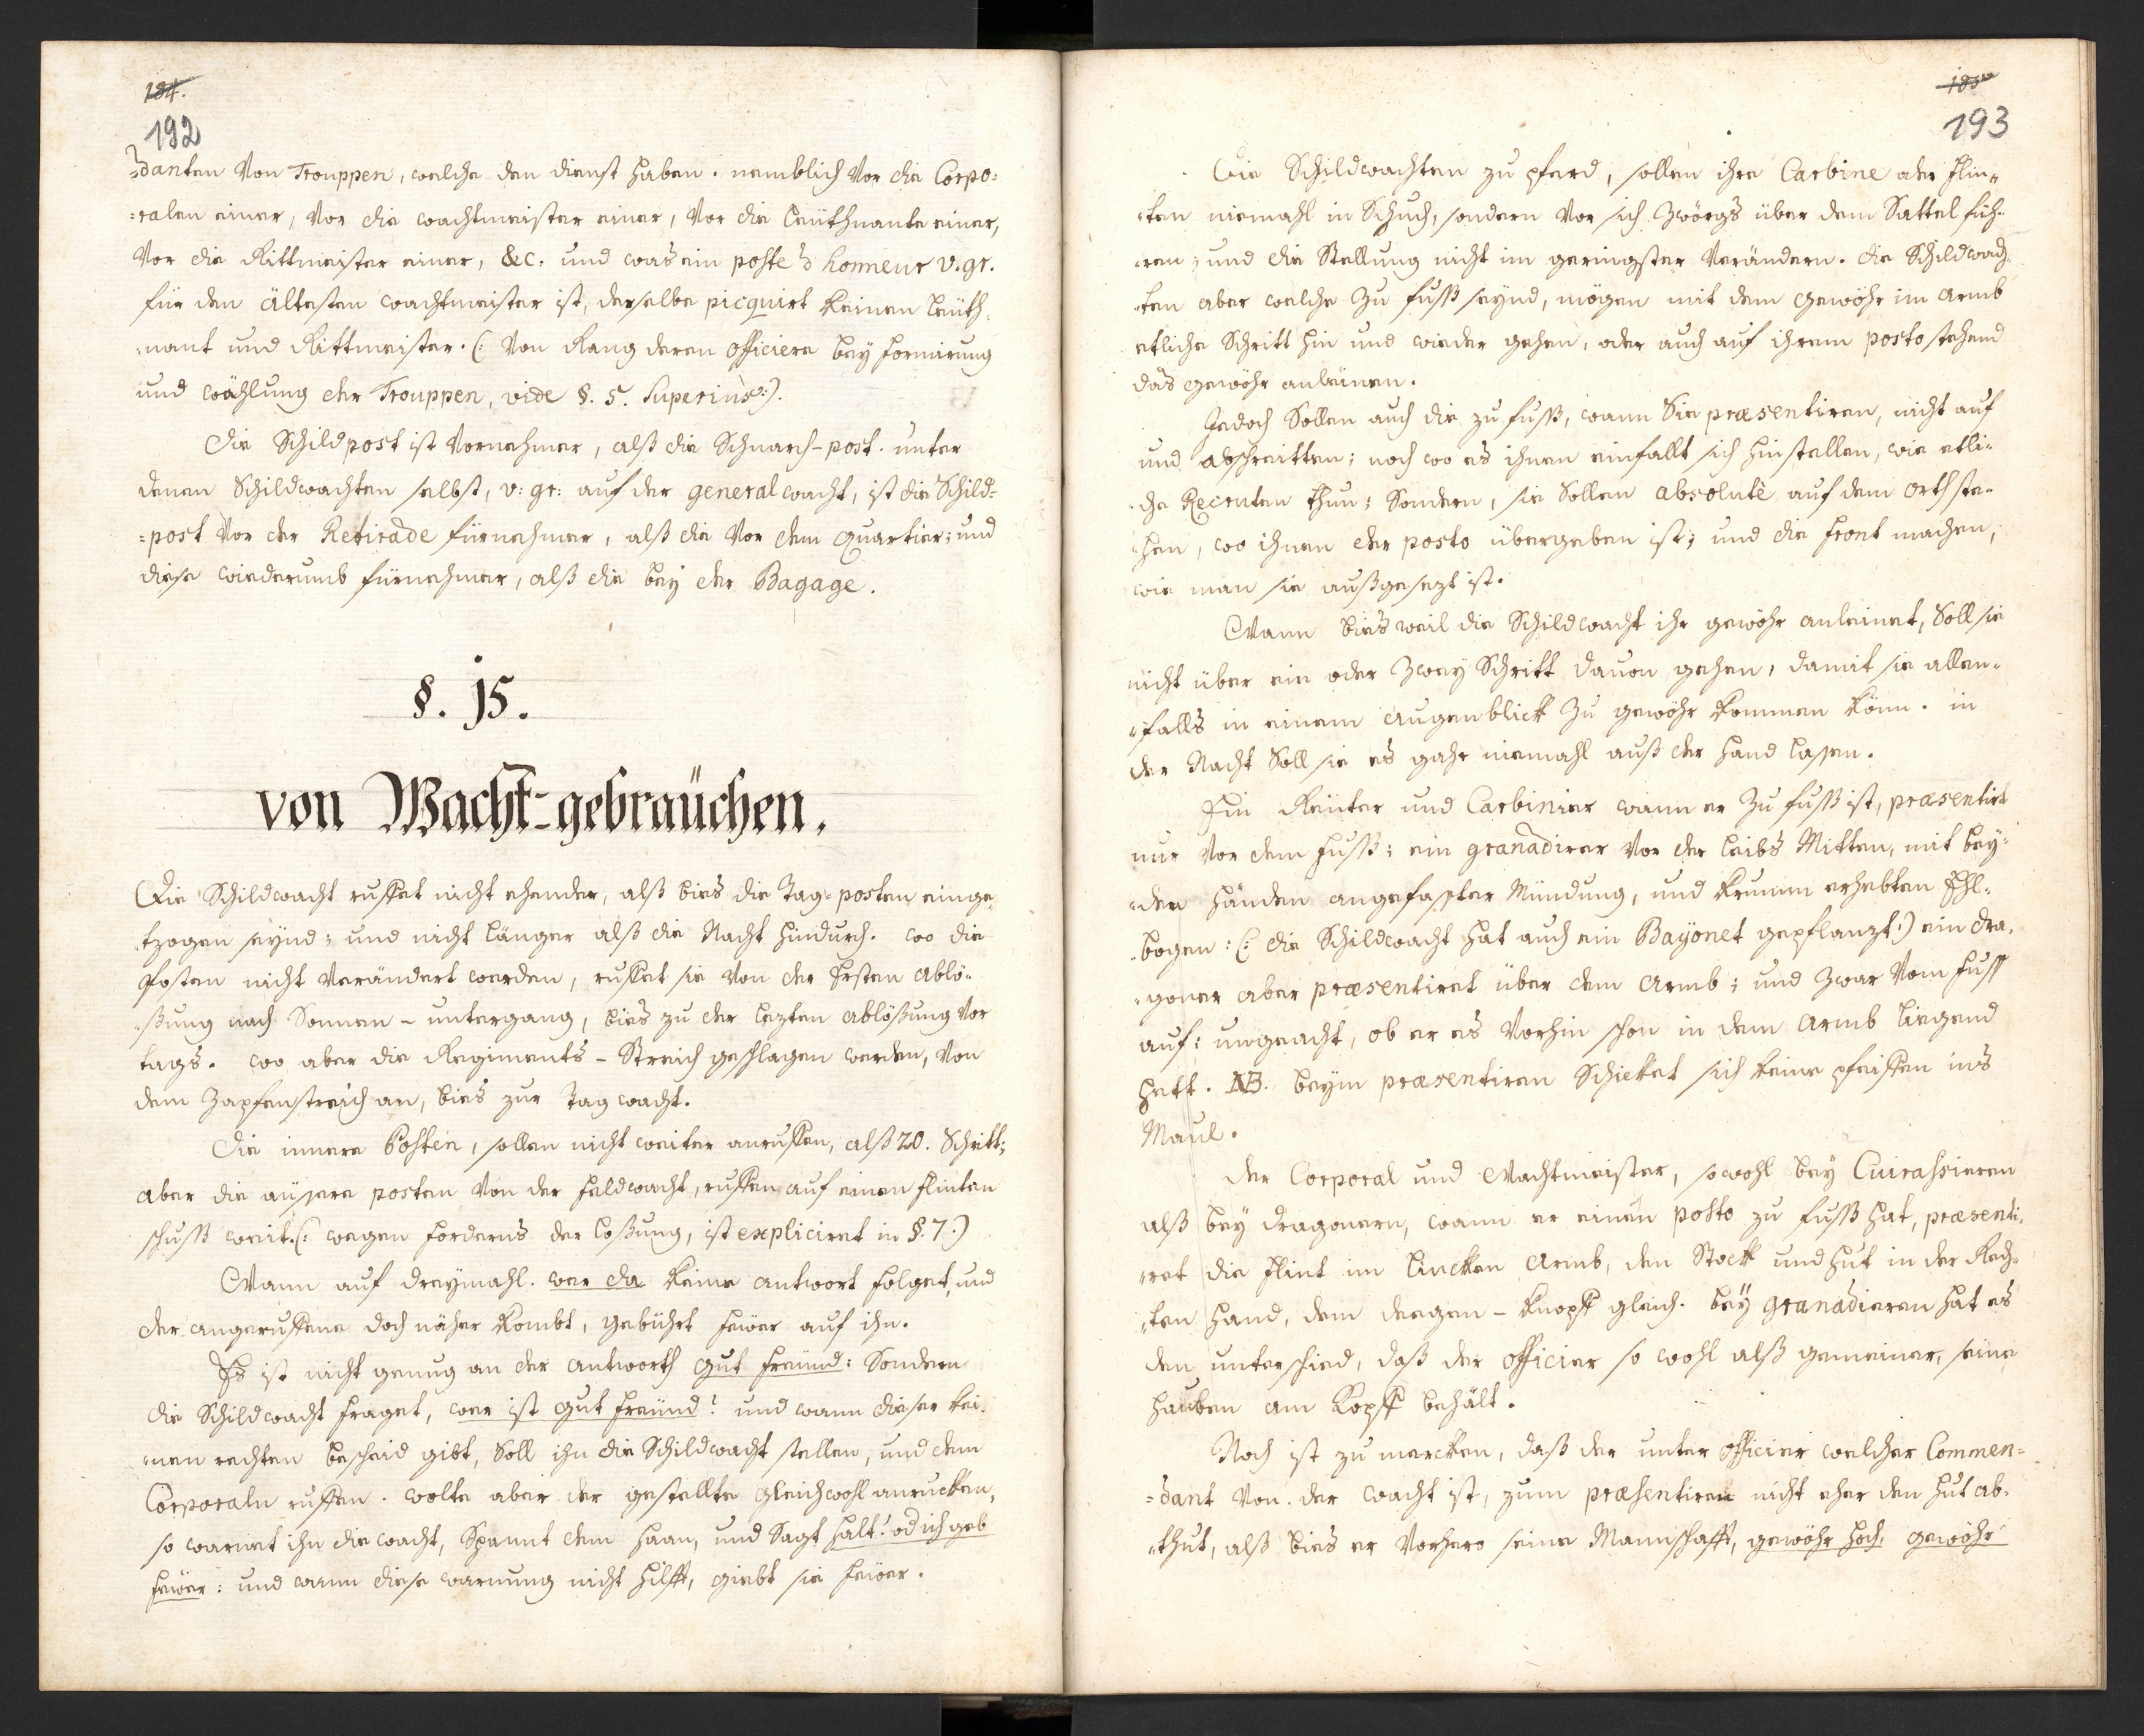 184.
192
:danten Von Trouppen, welche den dienst haben. nemblich Vor die Corpo:
:ralen einer, Vor die wachtmeister einer, Vor die Leüthnante einer,
Vor die Rittmeister einer, &c: und was ein poste d honneur v. gr.
für den ältesten wachtmeister ist, derselbe picquirt keinen Leüth:
:nant und Rittmeister. (: Von Rang deren officiere bey formirung
und wählung der Trouppen, vide §. 5. superiùs:).
Die Schildpost ist Vornehmer, alß die Schnarch-post. unter
denen Schildwachten selbst, v: gr: auf der generalwacht, ist die Schild=
=post Vor der Retirade fürnehmer, alß die Vor dem Quartier; und
diese wiederumb fürnehmer, alß die bey der Bagage.
§. 15.
von Wacht-gebraüchen.
Die Schildwacht ruffet nicht ehender, alß bies die Tag-posten einge:
:tzogen seynd; und nicht länger alß die Nacht hindurch. wo die
Posten nicht Verändert werden, ruffet sie Von der Ersten ablö:
:ßung nach Sonnen-untergang, bies zu der lezten ablößung Vor
tags. wo aber die Regiments-Streich geschlagen werden, Von
dem Zapfenstreich an, bies zur Tagwacht.
Die innere Posten, sollen nicht weiter anruffen, alß 20. Schritt;
aber die aüsere posten Von der feldwacht, ruffen auf einen flinten
schuß weit. (: wegen forderns der Loßung, ist expliciret in §. 7:)
Wann auf dreymahl. wer da keine antwort folget, und
der angeruffene doch näher kombt, gebührt feüer auf ihn.
Es ist nicht genug an der antworth gut freünd: Sondern
die Schildwacht fraget, wer ist gut freünd? und wann dieser kei:
:nen rechten bescheid gibt, Soll ihn die Schildwacht stellen, und dem
Corporaln ruffen. wolte aber der gestellte gleichwohl anrucken,
so warnet ihn die wacht, Spannt den Haan, und Sagt halt! od ich geb
feüer: und wann diese warnung nicht hilfft, giebt sie feüer.
185
193
Die Schildwachten zu pferd, sollen ihre Carbine oder flin:
:ten niemahl in Schuch, sondern Vor sich Zwörgs über dem Sattel füh:
:ren; und die Stellung nicht im geringsten Verändern. die Schildwach:
:ten aber welche Zu fuß seynd, mögen mit dem gewöhr im armb
etliche Schritt hin und wieder gehen, oder auch auf ihrem posto stehend
das gewöhr anleinen.
Jedoch Sollen auch die zu fuß, wann Sie præsentiren, nicht auf
und abschreitten; noch wo es ihnen einfallt sich hinstellen, wie etli:
:che Recruten thun; Sondern, sie Sollen absolutè auf dem orth ste:
:hen, wo ihnen der posto übergeben ist; und die front machen,
wie man sie außgesezt ist.
Wann biesweil die Schildwacht ihr gewöhr anleinet, Soll sie
nicht über ein oder Zwey Schritt davon gehen, damit sie allen:
:falls in einem augenblick Zu gewöhr kommen könn. in
der Nacht Soll sie es gahr niemahl auß der Hand lassen.
Ein Reüter und Carbinier wann er Zu fuß ist, præsentirt
nur Vor dem fuß; ein granadirer Vor der Leibs Mitten, mit bey:
:den Händen angefaster Mündung, und krumm erhebten Ehl:
:bogen: (: die Schildwacht hat auch ein Bayonet gepflanzt:) ein dra:
:goner aber præsentiret über dem armb; und zwar Vom fuß
auf: ungeacht, ob er es Vorhin schon in dem armb liegend
hatt. NB. beym præsentiren Schicket sich keine pfeiffen ins
Maul.
der Corporal und Wachtmeister, sowohl bey Cuirassieren
alß bey dragonern, wann er einen posto zu fuß hat, præsenti:
:ret die flint im Lincken armb, den Stock und Hut in der Rech:
:ten Hand, dem degen-knopff gleich. bey granadieren hat es
den unterschied, daß der officier so wohl alß gemeiner, seine
Hauben am Kopff behält.
Noch ist zu mercken, daß der unter officier welcher Commen=
=dant Von der wacht ist, zum præsentiren nicht eher den Hut ab:
:thut, alß bies er Vorhero seine Mannschafft, gewöhr hoch, gewöhr